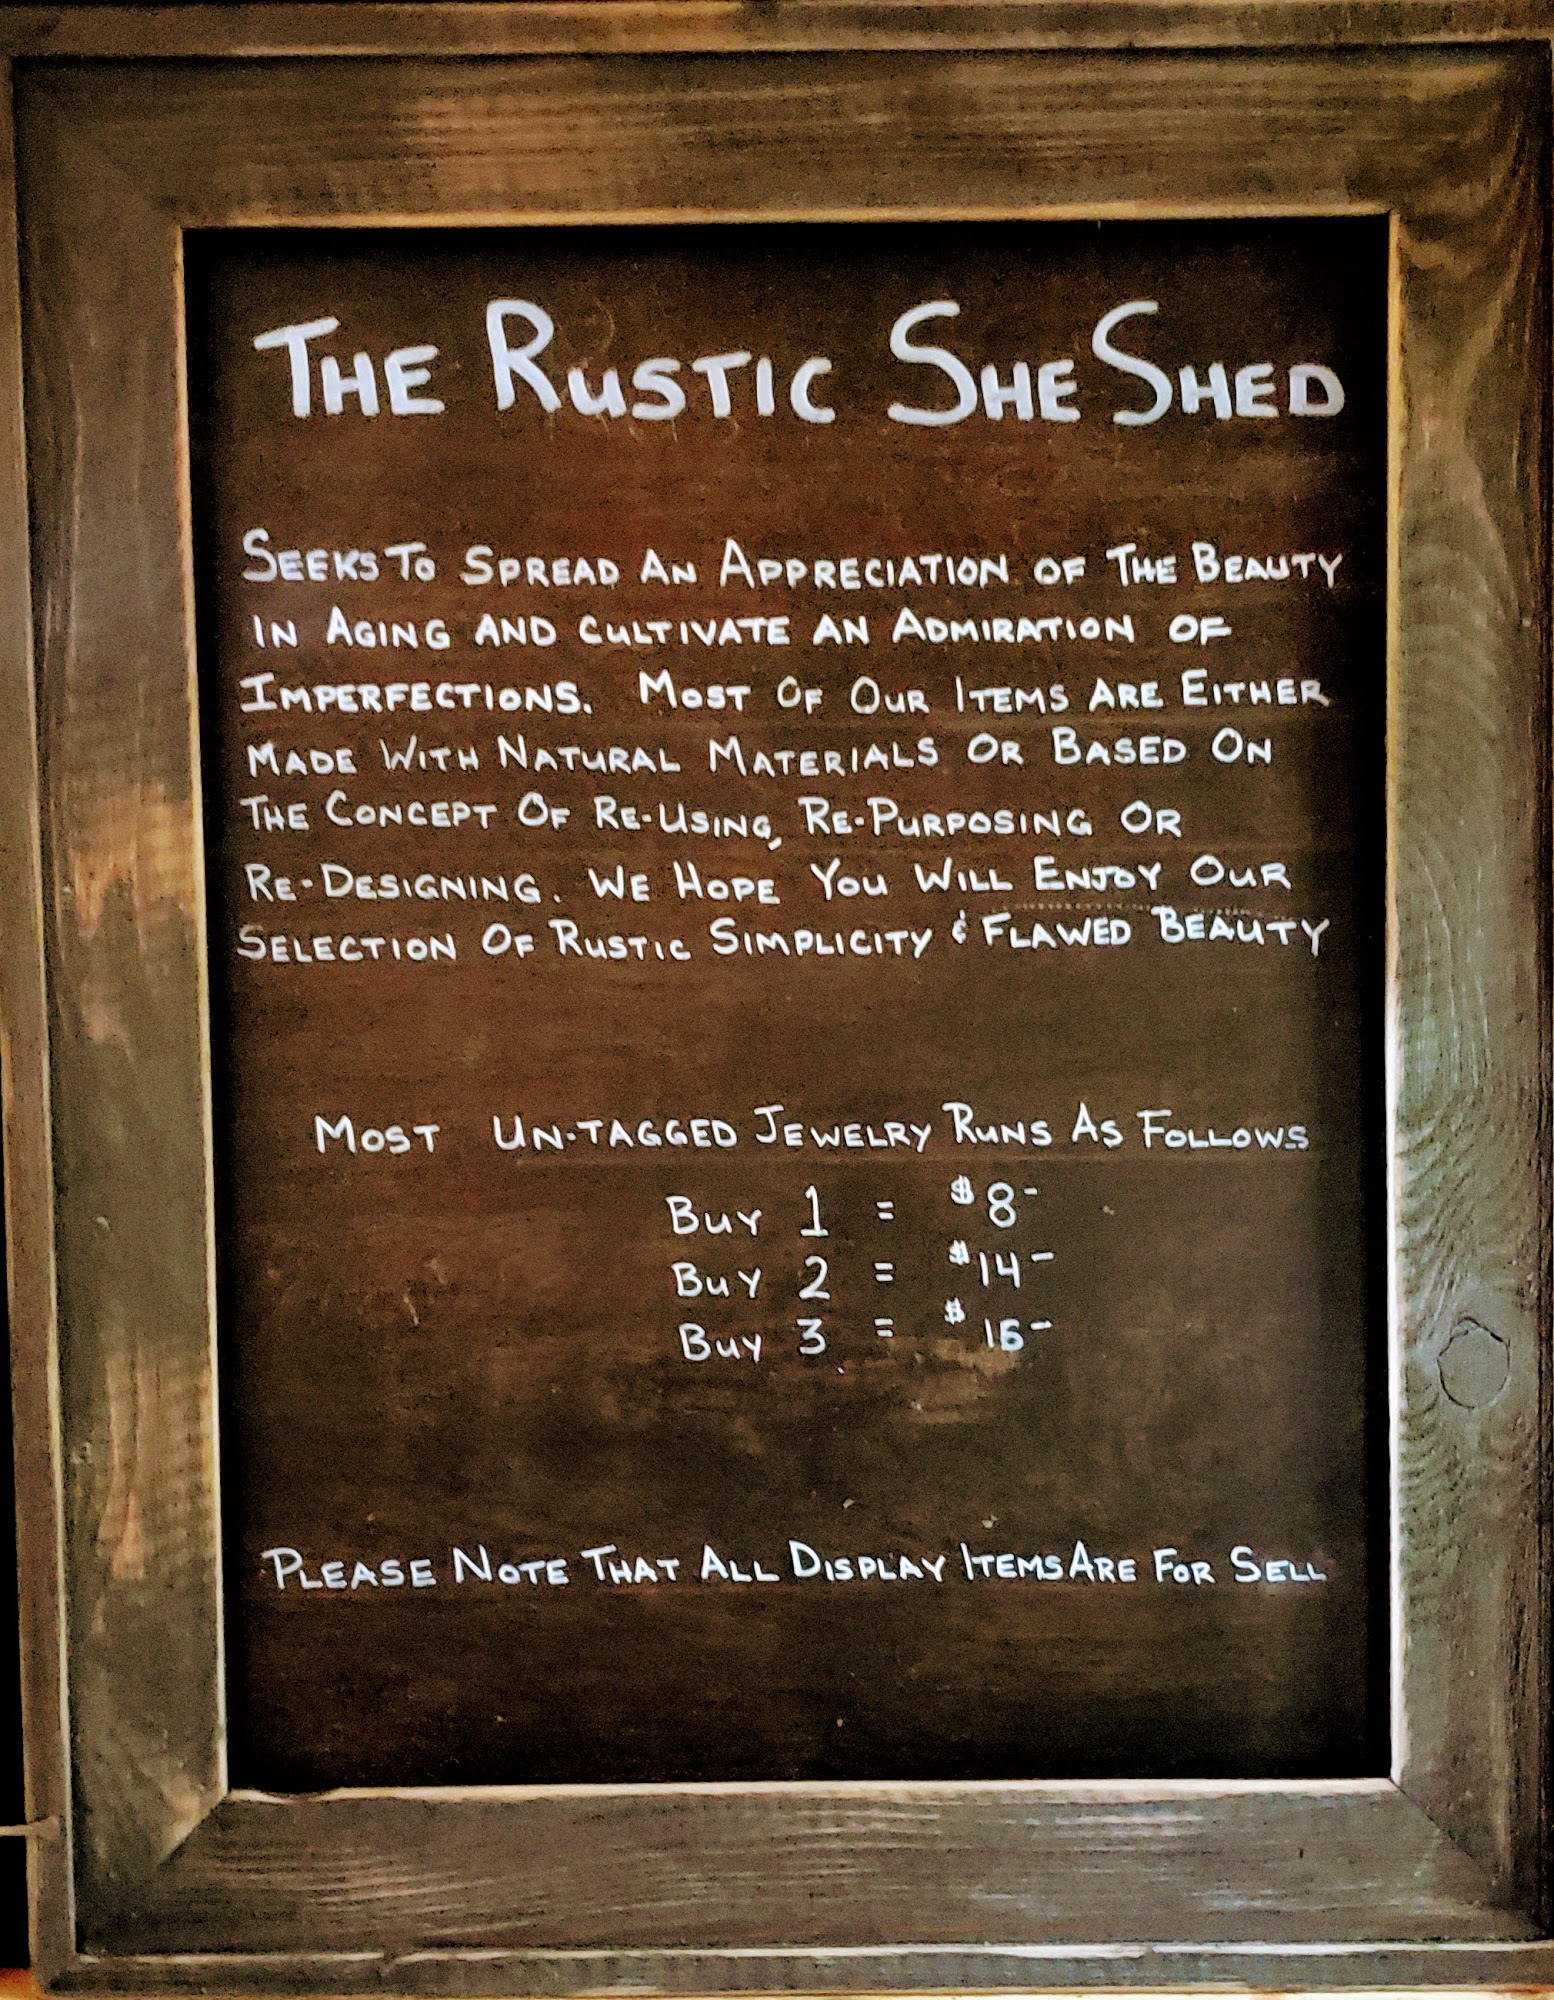 THE RUSTIC SHE SHED
SEEKS TO SPREAD AN APPRECIATION OF THE BEAUTY
IN AGING AND CULTIVATE AN ADMIRATION OF
IMPERFECTIONS. MOST OF OUR ITEMS ARE EITHER
MADE WITH NATURAL MATERIALS OR BASED ON
THE CONCEPT OF RE-USING, RE-PURPOSING OR
RE-DESIGNING. WE HOPE YOU WILL ENJOY OUR
SELECTION OF RUSTIC SIMPLICITY & FLAWED BEAUTY
MOST UN-TAGGED JEWELRY RUNS AS FOLLOWS
BUY 1 = $8-
BUY 2 = $14-
BUY 3 = $16-
PLEASE NOTE THAT ALL DISPLAY ITEMS ARE FOR SELL